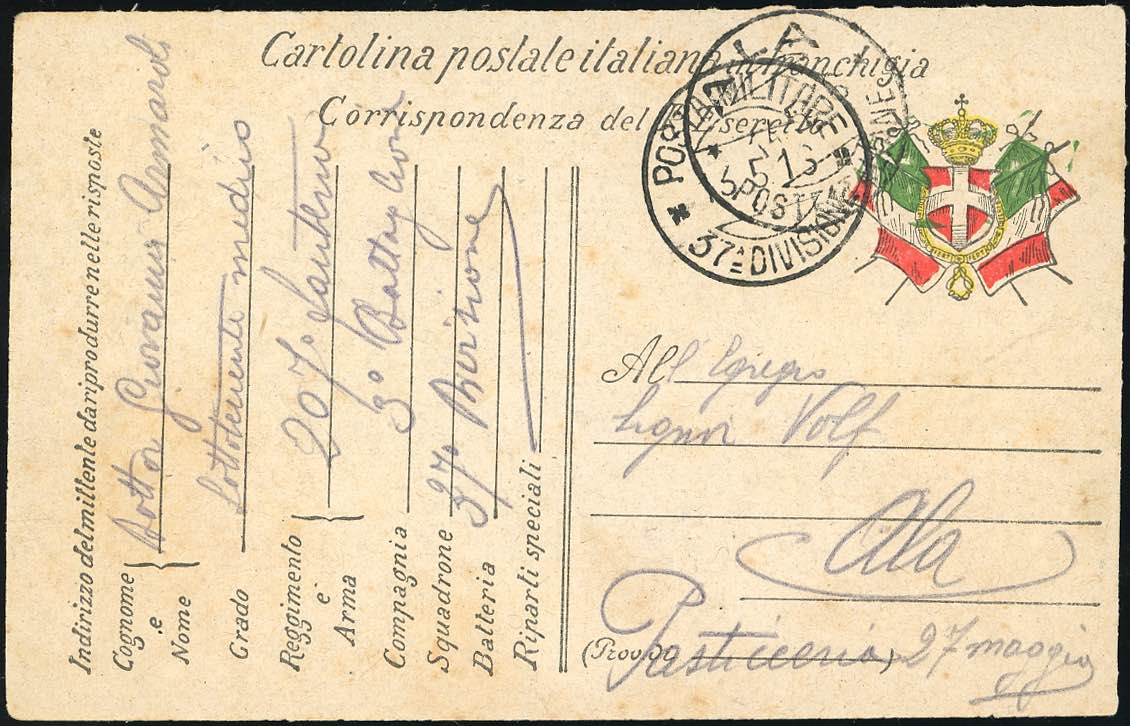 Cartolina postale italiana in franchigia
Corrispondenza del R. Esercito
POSTA MILITARE
5 16
37ª DIVISIONE
Indirizzo del mittente da riprodurre nelle risposte
Cognome e Nome
Dottor Giovanni
Grado
Sottotenente medico
Reggimento e Arma
207º fanteria
Compagnia
3º Battaglione
Squadrone
Batteria
37º Divisione
Riparti speciali
All' Egregio
Signor Volf
Ala
(Prov. di
Pasticceria
)
27 maggio